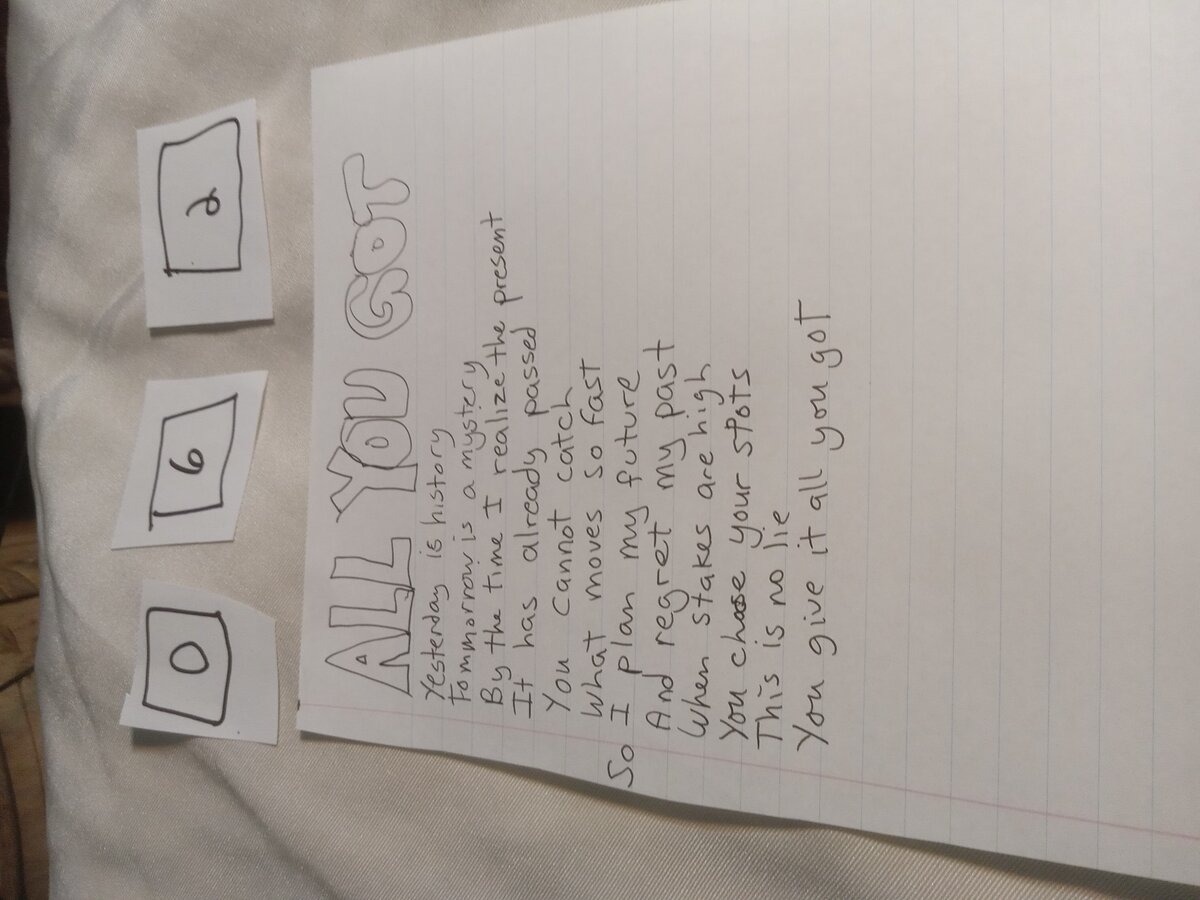 0 6 2
ALL YOU GOT
Yesterday is history
tommorrow is a mystery
By the time I realize the present
It has already passed
You cannot catch
What moves so fast
So I plan my future
And regret my past
When stakes are high
You choose your spots
This is no lie
You give it all you got